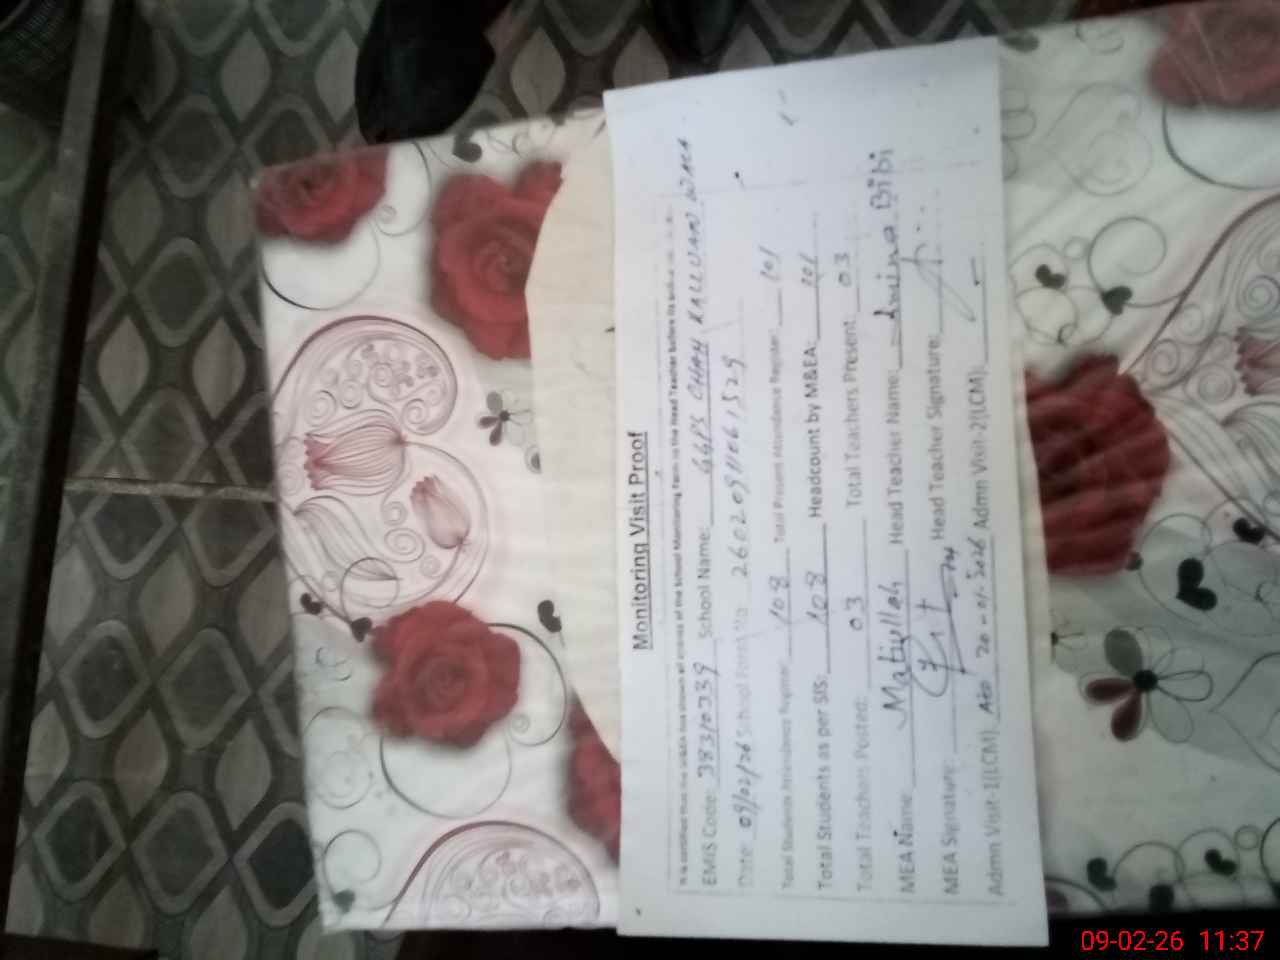 Monitoring Visit Proof
It is certified that the MEA has shown all entries of the School Monitoring Form to the Head Teacher before its
EMIS Code: 38310339 School Name: GGPS CHAH KALLUAN WALA
Date: 09/02/26 School Form No 26020911061529
Total Students Attendance Register: 108 Total Present Attendance Register: 101
Total Students as per SIS: 108 Headcount by M&EA: 101
Total Teachers Posted: 03 Total Teachers Present: 03
MEA Name: Matiullah Head Teacher Name: Bibi
MEA Signature: Head Teacher Signature:
Admn Visit-1(LCM) 20-01-2026 Admn Visit-2(LCM)
09-02-26 11:37